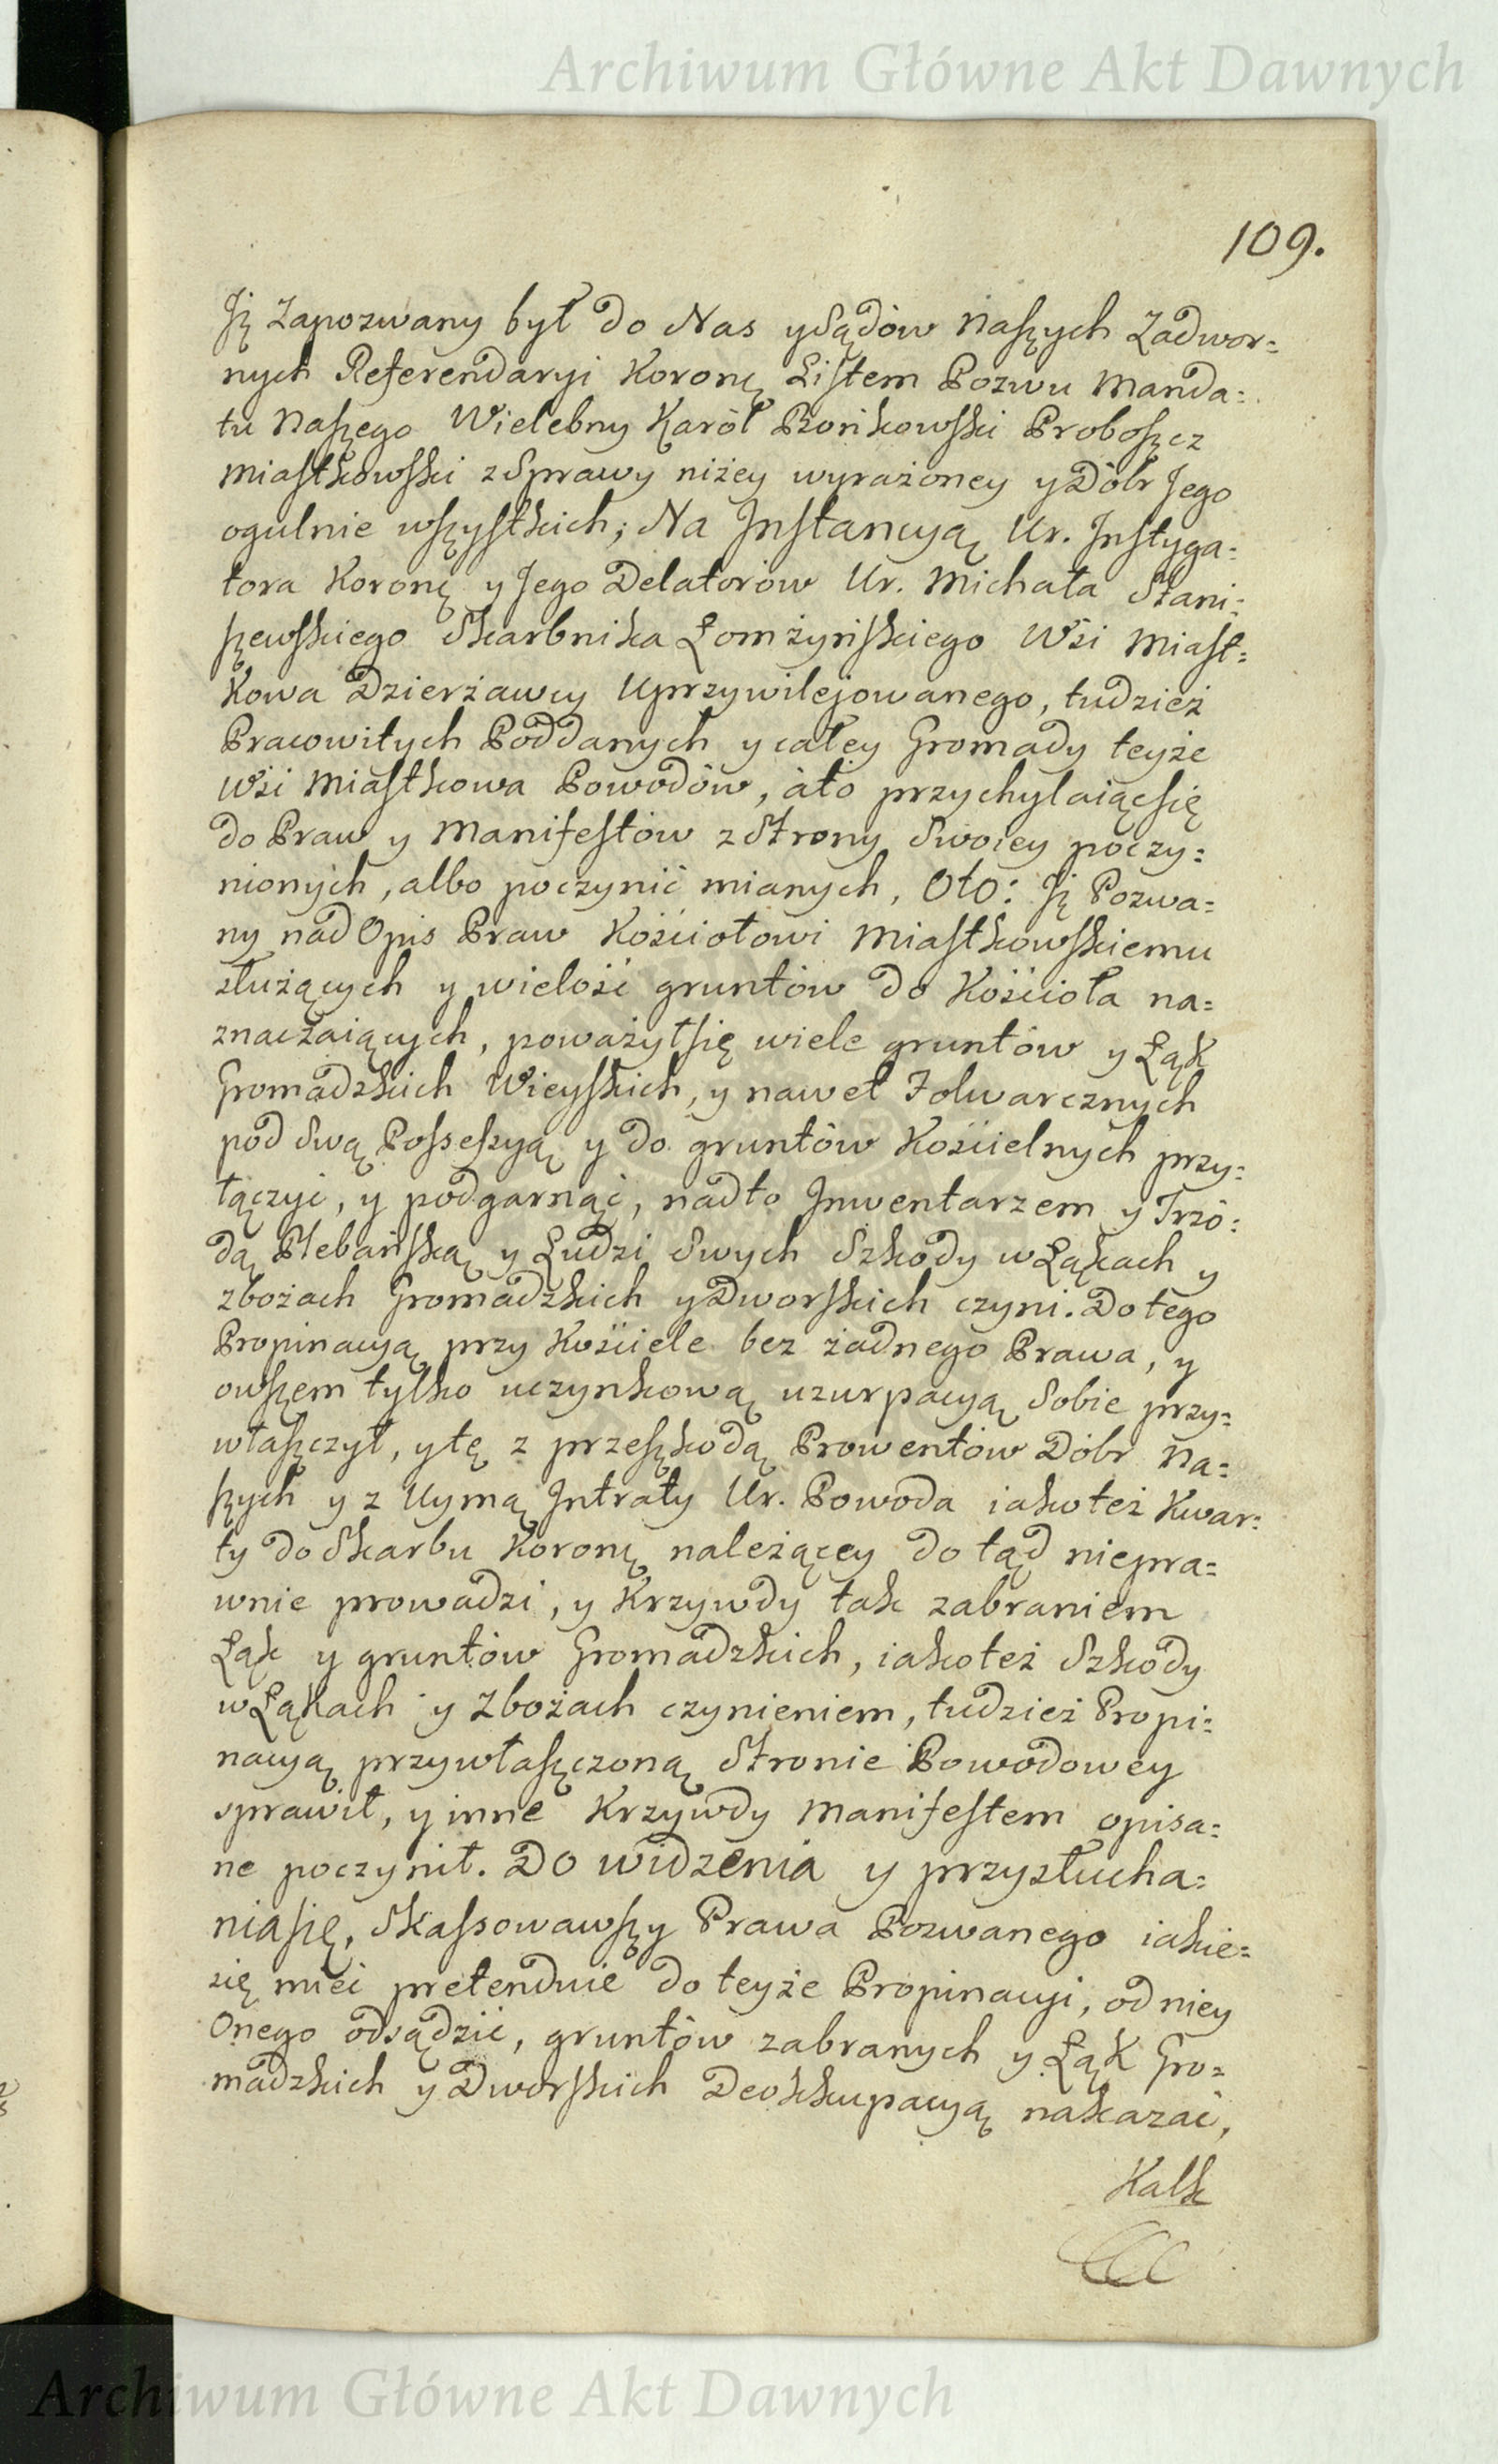 Archiwum Główne Akt Dawnych
109.
Iż Zapozwany był do Nas y Sądów Naszych Zadwor=
nych Referendaryi Koronę Listem Pozwu Manda=
tu Naszego Wielebny Karól Bońkowski Proboszcz
Miastkowski z Sprawy niżey wyrażoney y Dóbr Jego
ogulnie wszystkich; Na Instancyą Ur. Instyga=
tora Koronę y Jego Delatorów Ur. Michała Stani=
szewskiego Skarbnika Łomżyńskiego Wśi Miast=
kowa Dzierżawcy Uprzywilejowanego, tudzież
Pracowitych Poddanych y całey Gromady teyże
Wśi Miastkowa Powodów, áto przychylaiącsię
do Praw y Manifestów z Strony Swoiey poczy=
nionych, albo poczynić mianych, Oto: Iż Pozwa=
ny nad Opis Praw Kościołowi Miastkowskiemu
służących y wielość gruntów do Kościoła na=
znaczaiących, poważyłsię wiele gruntów y Łąk
Gromadzkich Wieyskich, y nawet Folwarcznych
pod Swą Possessyą y do gruntów Kościelnych przy=
łączyć, y podgarnąć, nadto Inwentarzem y Trzo=
dą Plebańską y Ludzi Swych Szkody w Łąkach y
zbożach Gromadzkich y Dworskich czyni. Dotego
Propinacyą przy Kościele bez żadnego Prawa, y
owszem tylko uczynkową uzurpacyą Sobie przy=
właszczył, y tę z przeszkodą Prowentów Dóbr Na=
szych y z Uymą Intraty Ur. Powoda iakoteż Kwar=
ty do Skarbu Koronę należącey do tąd niepra=
wnie prowadzi, y Krzywdy tak zabraniem
Łąk y gruntów Gromadzkich, iakoteż Szkody
w Łąkach y Zbożach czynieniem, tudzież Propi=
nacyą przywłaszczoną Stronie Powodowey
sprawił, y inne Krzywdy Manifestem opisa=
ne poczynił. Do widzenia y przysłucha=
niasię, Skassowawszy Prawa Pozwanego iakie=
się mieć pretenduie do teyże Propinacyi, od niey
Onego odsądzić, gruntów zabranych y Łąk Gro=
madzkich y Dworskich Deokkupacyą nakazać,
Kalk
Archiwum Główne Akt Dawnych